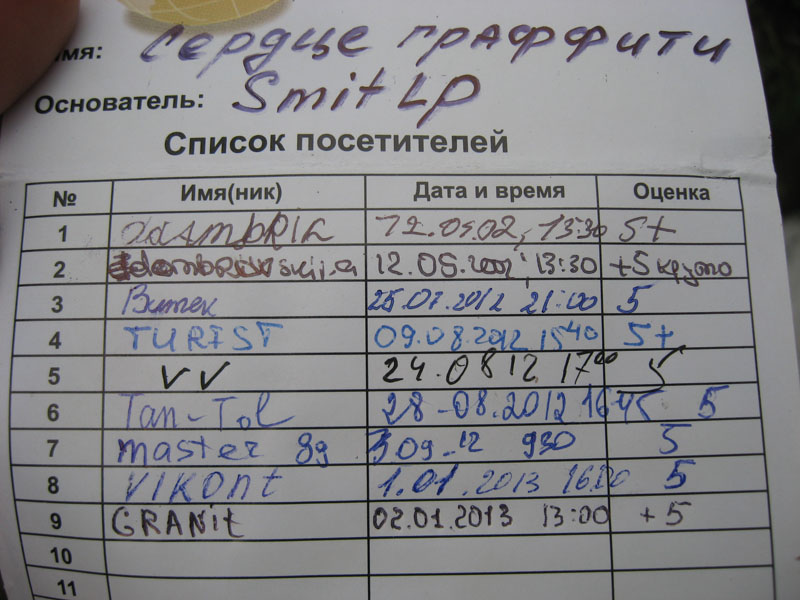 имя: Сердце граффити
Основатель: Smit LP
Список посетителей
№ Имя(ник) Дата и время Оценка
1 13:30 5+
2 13:30 +5 круто
3 Витек 25.07.2012 21:00 5
4 TURIST 09.08.2012 15 40 5+
5 VV 24.08 12 17 00 5
6 Tan-Tol 28-08.2012 16 45 5
7 master 89 3 09-12 930 5
8 VIKOnt 1.01.2013 16:00 5
9 GRANit 02.01.2013 13:00 +5
10
11